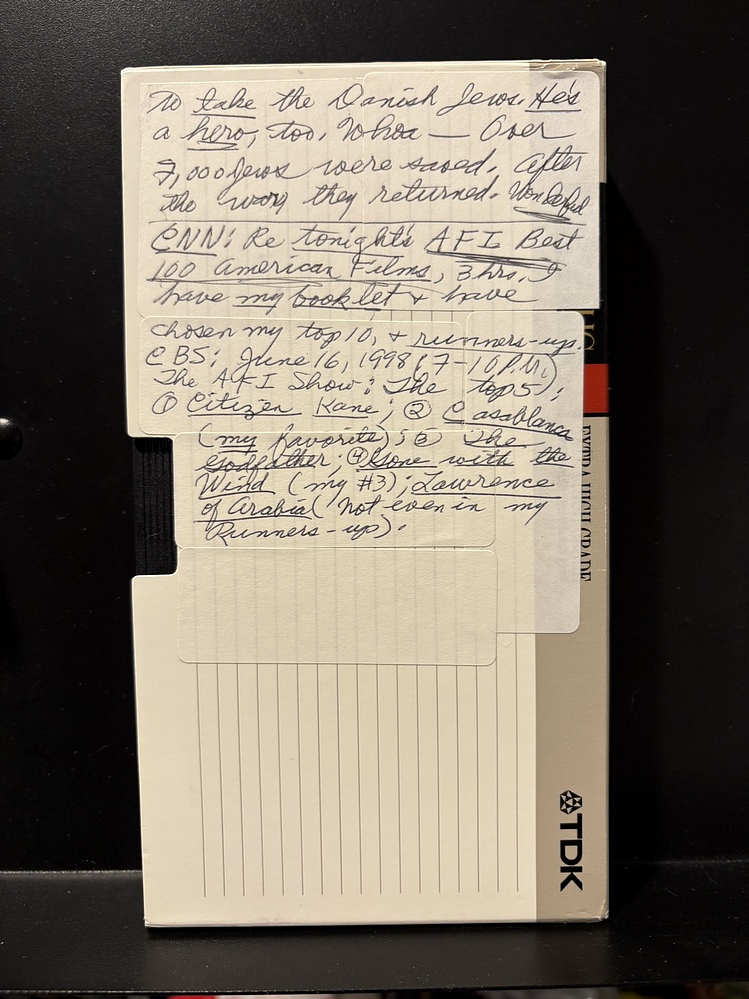 to take the Danish Jews. He's
a hero, too. Whoa — Over
7,000 Jews were saved. After
the war, they returned. Wonderful
CNN: Re tonight's AFI Best
100 American Films, 3 hrs. I
have my booklet & have
chosen my top 10, & runners-ups.
CBS: June 16, 1998 (7-10 P.M.)
The AFI Show: The top 5:
① Citizen Kane; ② Casablanca
(my favorite); ③ The
Godfather; ④ Gone with the
Wind (my #3); Lawrence
of Arabia (not even in my
Runners-ups).
EXTRA HIGH GRADE
TDK